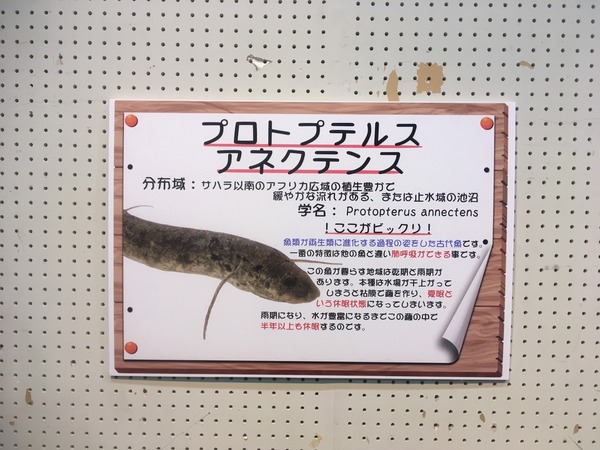 プロトプテルス
アネクテンス
分布域：サハラ以南のアフリカ広域の植生豊かで
緩やかな流れがある、または止水域の池沼
学名： Protopterus annectens
！ここがビックリ！
魚類が両生類に進化する過程の姿をした古代魚です。
一番の特徴は他の魚と違い肺呼吸ができる事です。
この魚が暮らす地域は乾期と雨期が
あります。本種は水場が干上がって
しまうと粘膜で繭を作り、夏眠と
いう休眠状態になってしまいます。
雨期になり、水が豊富になるまでこの繭の中で
半年以上も休眠するのです。